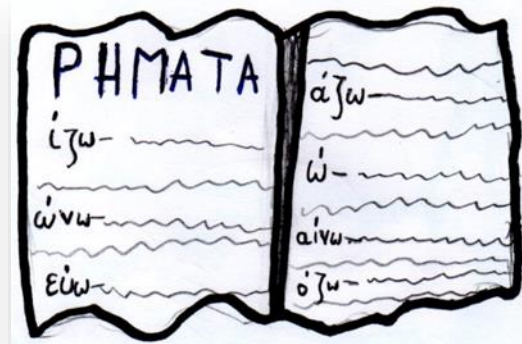 ΡΗΜΑΤΑ
ίζω-
ώνω-
εύω-
άζω-
ώ-
αίνω-
όζω-